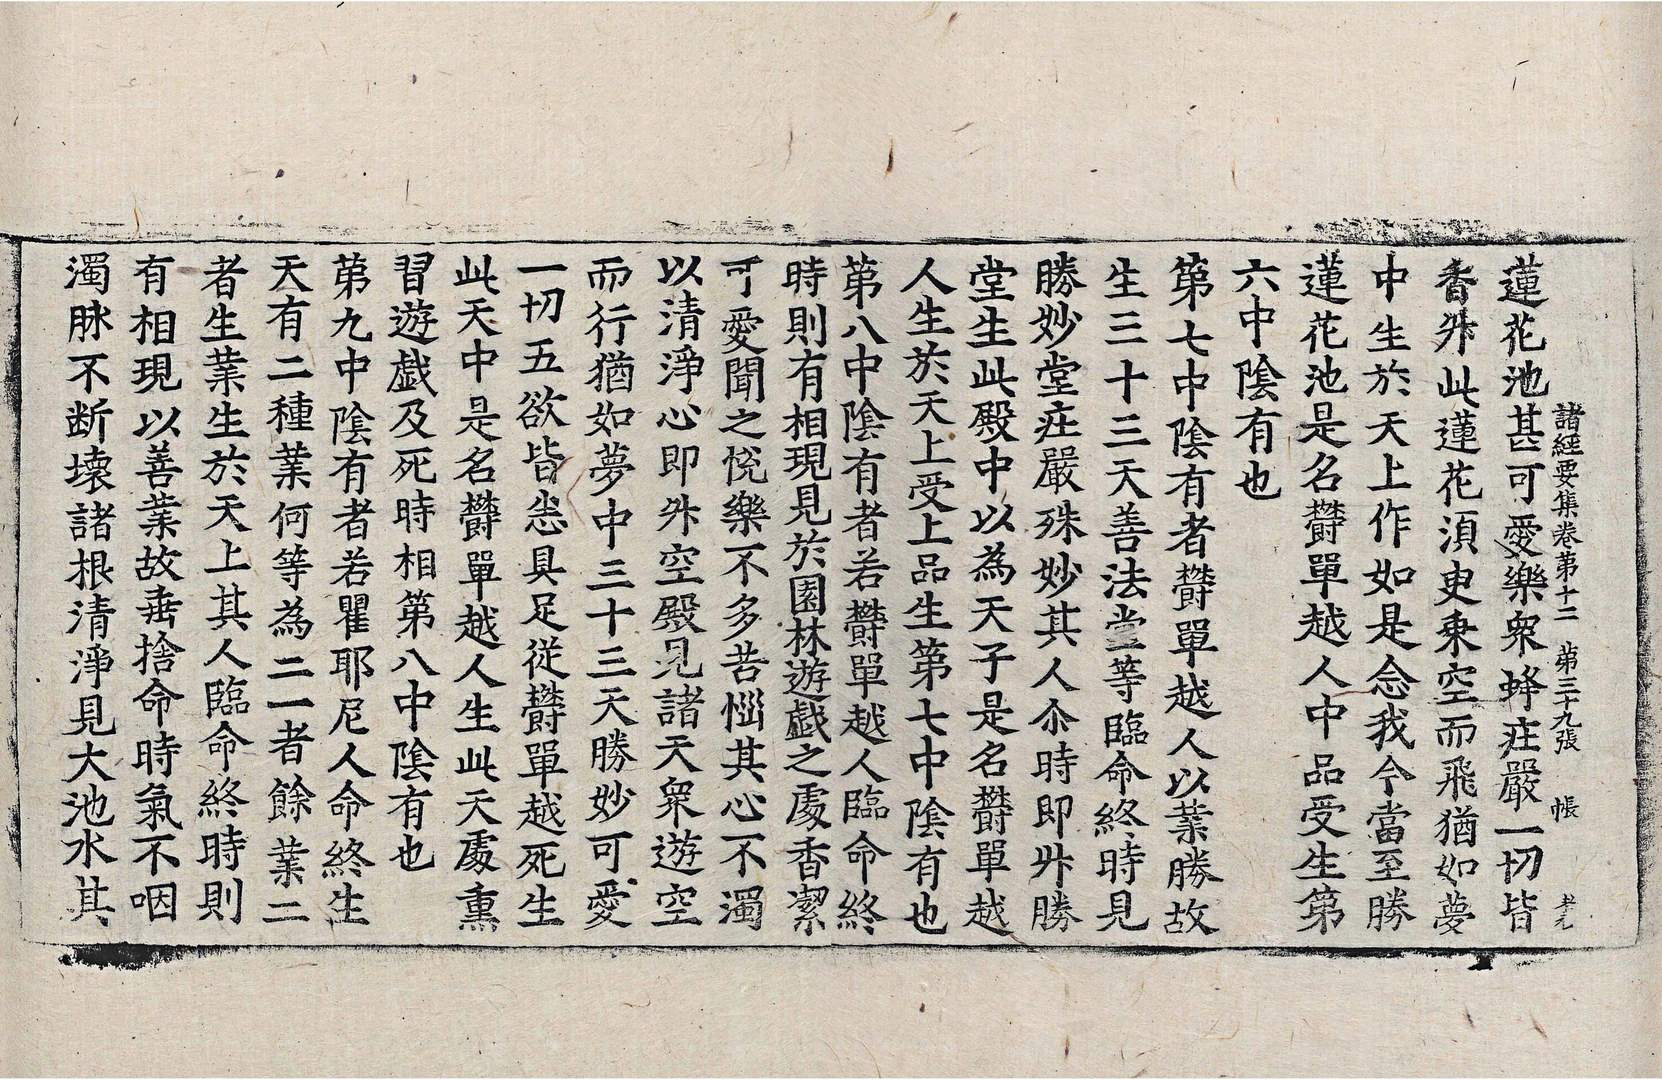 諸經要集卷第十二 第三十九張 帳
蓮花池甚可愛樂衆蜂庄嚴一切皆
香昇此蓮花湏臾乗空而飛猶如夢
中生於天上作如是念我今當至勝
蓮花池是名欝單越人中品受生第
六中陰有也
第七中陰有者欝單越人以業勝故
生三十三天善法堂等臨命終時見
勝妙堂庄嚴殊妙其人尒時即昇勝
堂生此殿中以為天子是名欝單越
人生於天上受上品生第七中陰有也
第八中陰有者若欝單越人臨命終
時則有相現見於園林遊戲之處香潔
可愛聞之悅樂不多苦惱其心不濁
以清淨心即昇空殿見諸天衆遊空
而行猶如夢中三十三天勝妙可愛
一切五欲皆悉具足從欝單越死生
此天中是名欝單越人生此天處熏
習遊戲及死時相第八中陰有也
第九中陰有者若瞿耶尼人命終生
天有二種業何等為二一者餘業二
者生業生於天上其人臨命終時則
有相現以善業故垂捨命時氣不咽
濁脉不断壞諸根清淨見大池水其